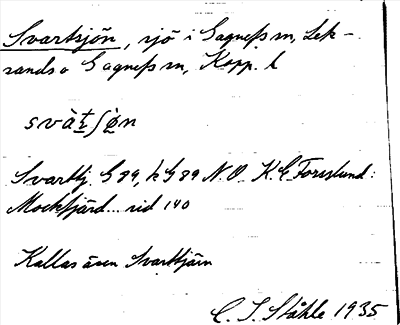 Svartsjön, sjö i Gagnefs sn, Lek-
sands o Gagnefs sn, Kopp. l
svàt̠ʃø̀n
Svarttj. G 89, h G 89 N.O. K.E. Forsslund:
Mockfjärd... sid 140
Kallas även Svarttjärn
C. I. Ståhle 1935